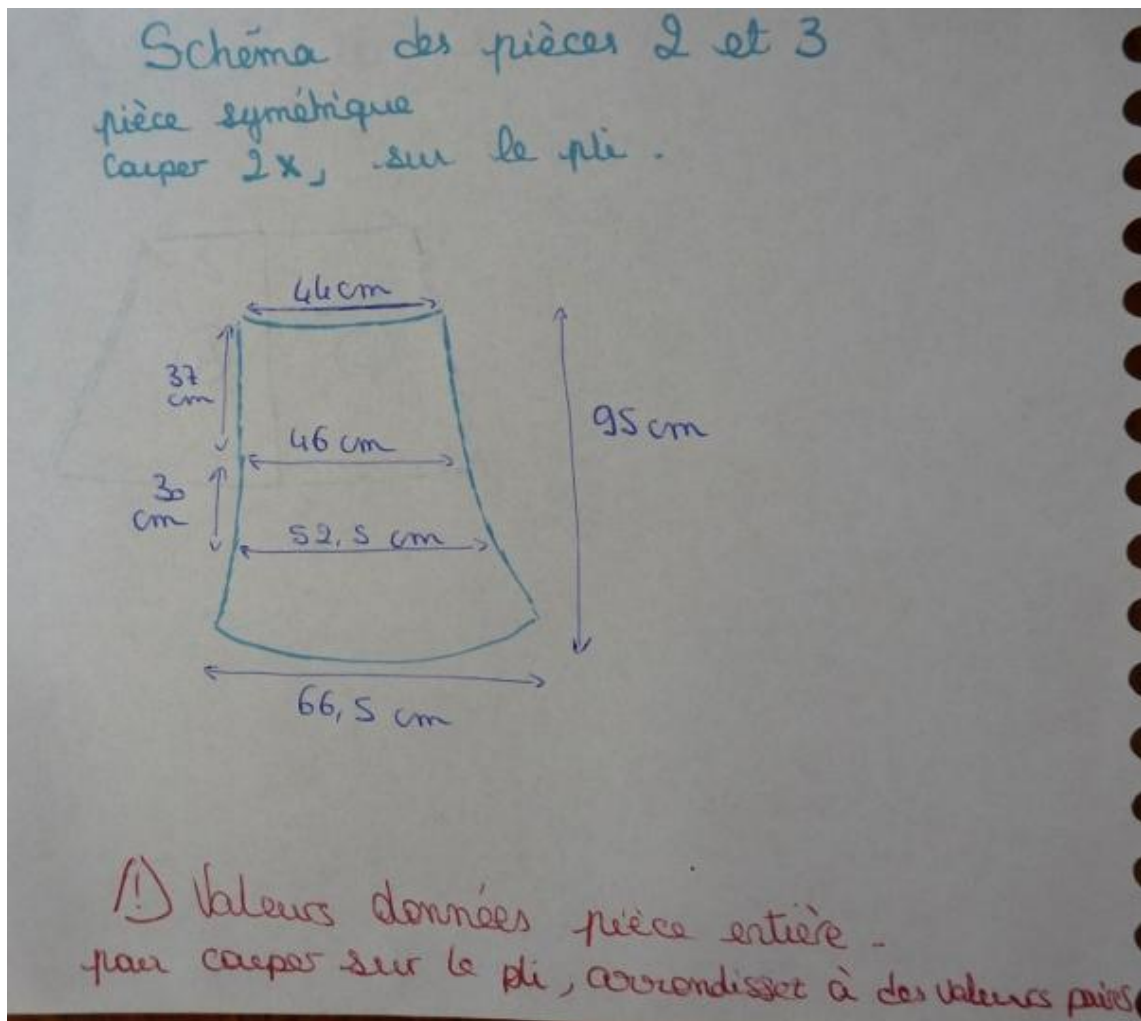 Schéma des pièces 2 et 3
pièce symétrique
Couper 2x, sur le pli.
44cm
37
cm
46 cm
95 cm
30
cm
52,5 cm
66,5 cm
(!) Valeurs données pièce entière -
pour couper sur le pli, arrondisset à des valeurs paires